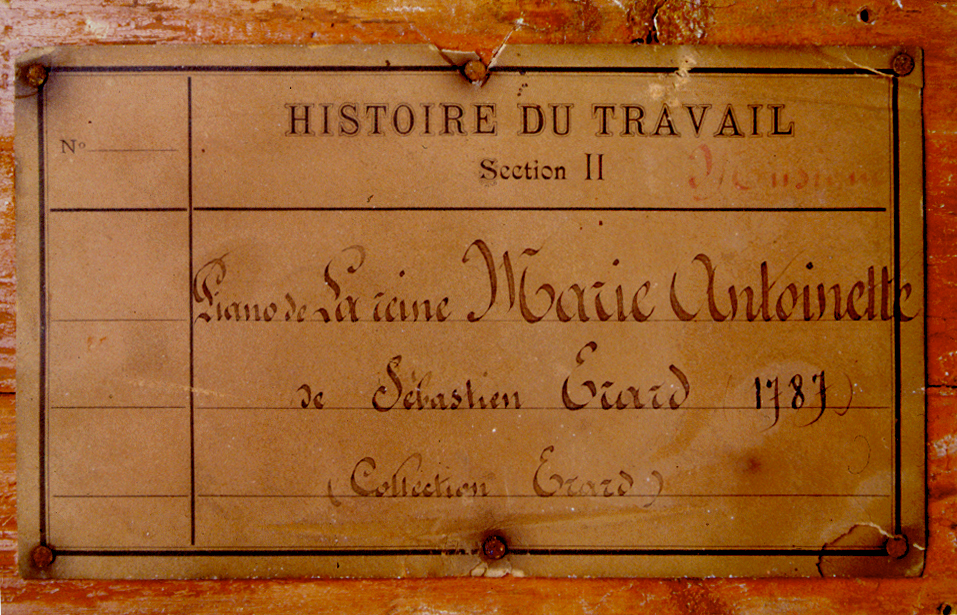 HISTOIRE DU TRAVAIL
Nº
Section II
Musique
Piano de La reine Marie Antoinette
de Sébastien Erard (1787)
(Collection Erard)